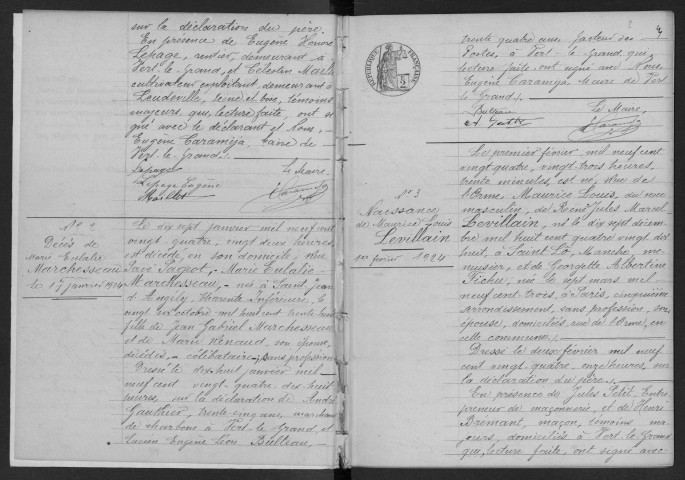 sur la déclaration du père.
En présence de Eugène Honoré
Lepage, rentier, demeurant à
Vert-le-Grand, et Célestin
cultivateur exploitant, demeurant à
Leudeville, témoins
majeurs qui, lecture faite, ont si
gné avec le déclarant et Nous,
Eugène Caramija, Maire de
Vert-le-Grand.
Lepage
Le Maire,
Lepage Eugène
N° 2
Décès de
Marie Eulalie
Marchesseau
le 17 janvier 1924
Le dix sept janvier mil neuf cent
vingt quatre, vingt deux heures,
est décédée, en son domicile, rue
Marie Eulalie
Marchesseau, née à Saint Jean
d'Angely, Charente Inférieure, le
vingt six octobre mil huit cent trente huit
fille de Jean Gabriel Marchesseau
et de Marie Renaud, son épouse,
décédés, célibataire, sans profession
Dressé le dix huit janvier mil
neuf cent vingt-quatre, dix huit
heures, sur la déclaration de André
Gauthier, trente cinq ans, marchand
de charbons à Vert-le-Grand, et
Lucien Eugène Léon Bulteau,
4
trente quatre ans, facteur des
Postes, à Vert-le-Grand, qui,
lecture faite, ont signé avec Nous,
Eugène Caramija, Maire de Vert
le Grand.
RÉPUBLIQUE FRANÇAISE
Bulteau
Le Maire,
N° 3
Naissance
de Maurice Louis
Levillain
1er février 1924
Le premier février mil neuf cent
vingt quatre, vingt trois heures,
trente minutes, est né, Rue de
l'Orme, Maurice Louis, du sexe
masculin, de René Jules Marcel
Levillain, né le dix sept décem
bre mil huit cent quatre vingt dix
huit, à Saint Lô, Manche, me
nuisier, et de Georgette Albertine
Fichu, née le sept mars mil
neuf cent trois, à Paris, cinquième
arrondissement, sans profession, son
épouse, domiciliés, rue de l'Orme, en
cette commune.
Dressé le deux février mil neuf
cent vingt-quatre, onze heures, sur
la déclaration du père.
En présence de Jules Petit, Entre
preneur de maçonnerie, et de Henri
Brémant, maçon, témoins ma
jeurs, domiciliés à Vert-le-Grand
qui, lecture faite, ont signé avec